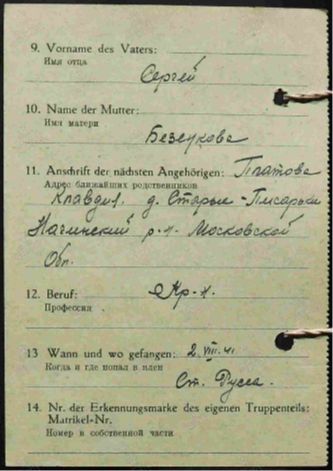 9. Vorname des Vaters:
Имя отца
Сергей
10. Name der Mutter:
Имя матери
Безсукова
11. Anschrift der nächsten Angehörigen: Платова
Адрес ближайших родственников
Клавдия. д. Старые-Писарьки
р-н. Московской
Обл.
12. Beruf: Кр-н.
Профессия
13 Wann und wo gefangen: 2.VIII.41
Когда и где попал в плен
Ст. Русса.
14. Nr. der Erkennungsmarke des eigenen Truppenteils:
Matrikel-Nr.
Номер в собственной части